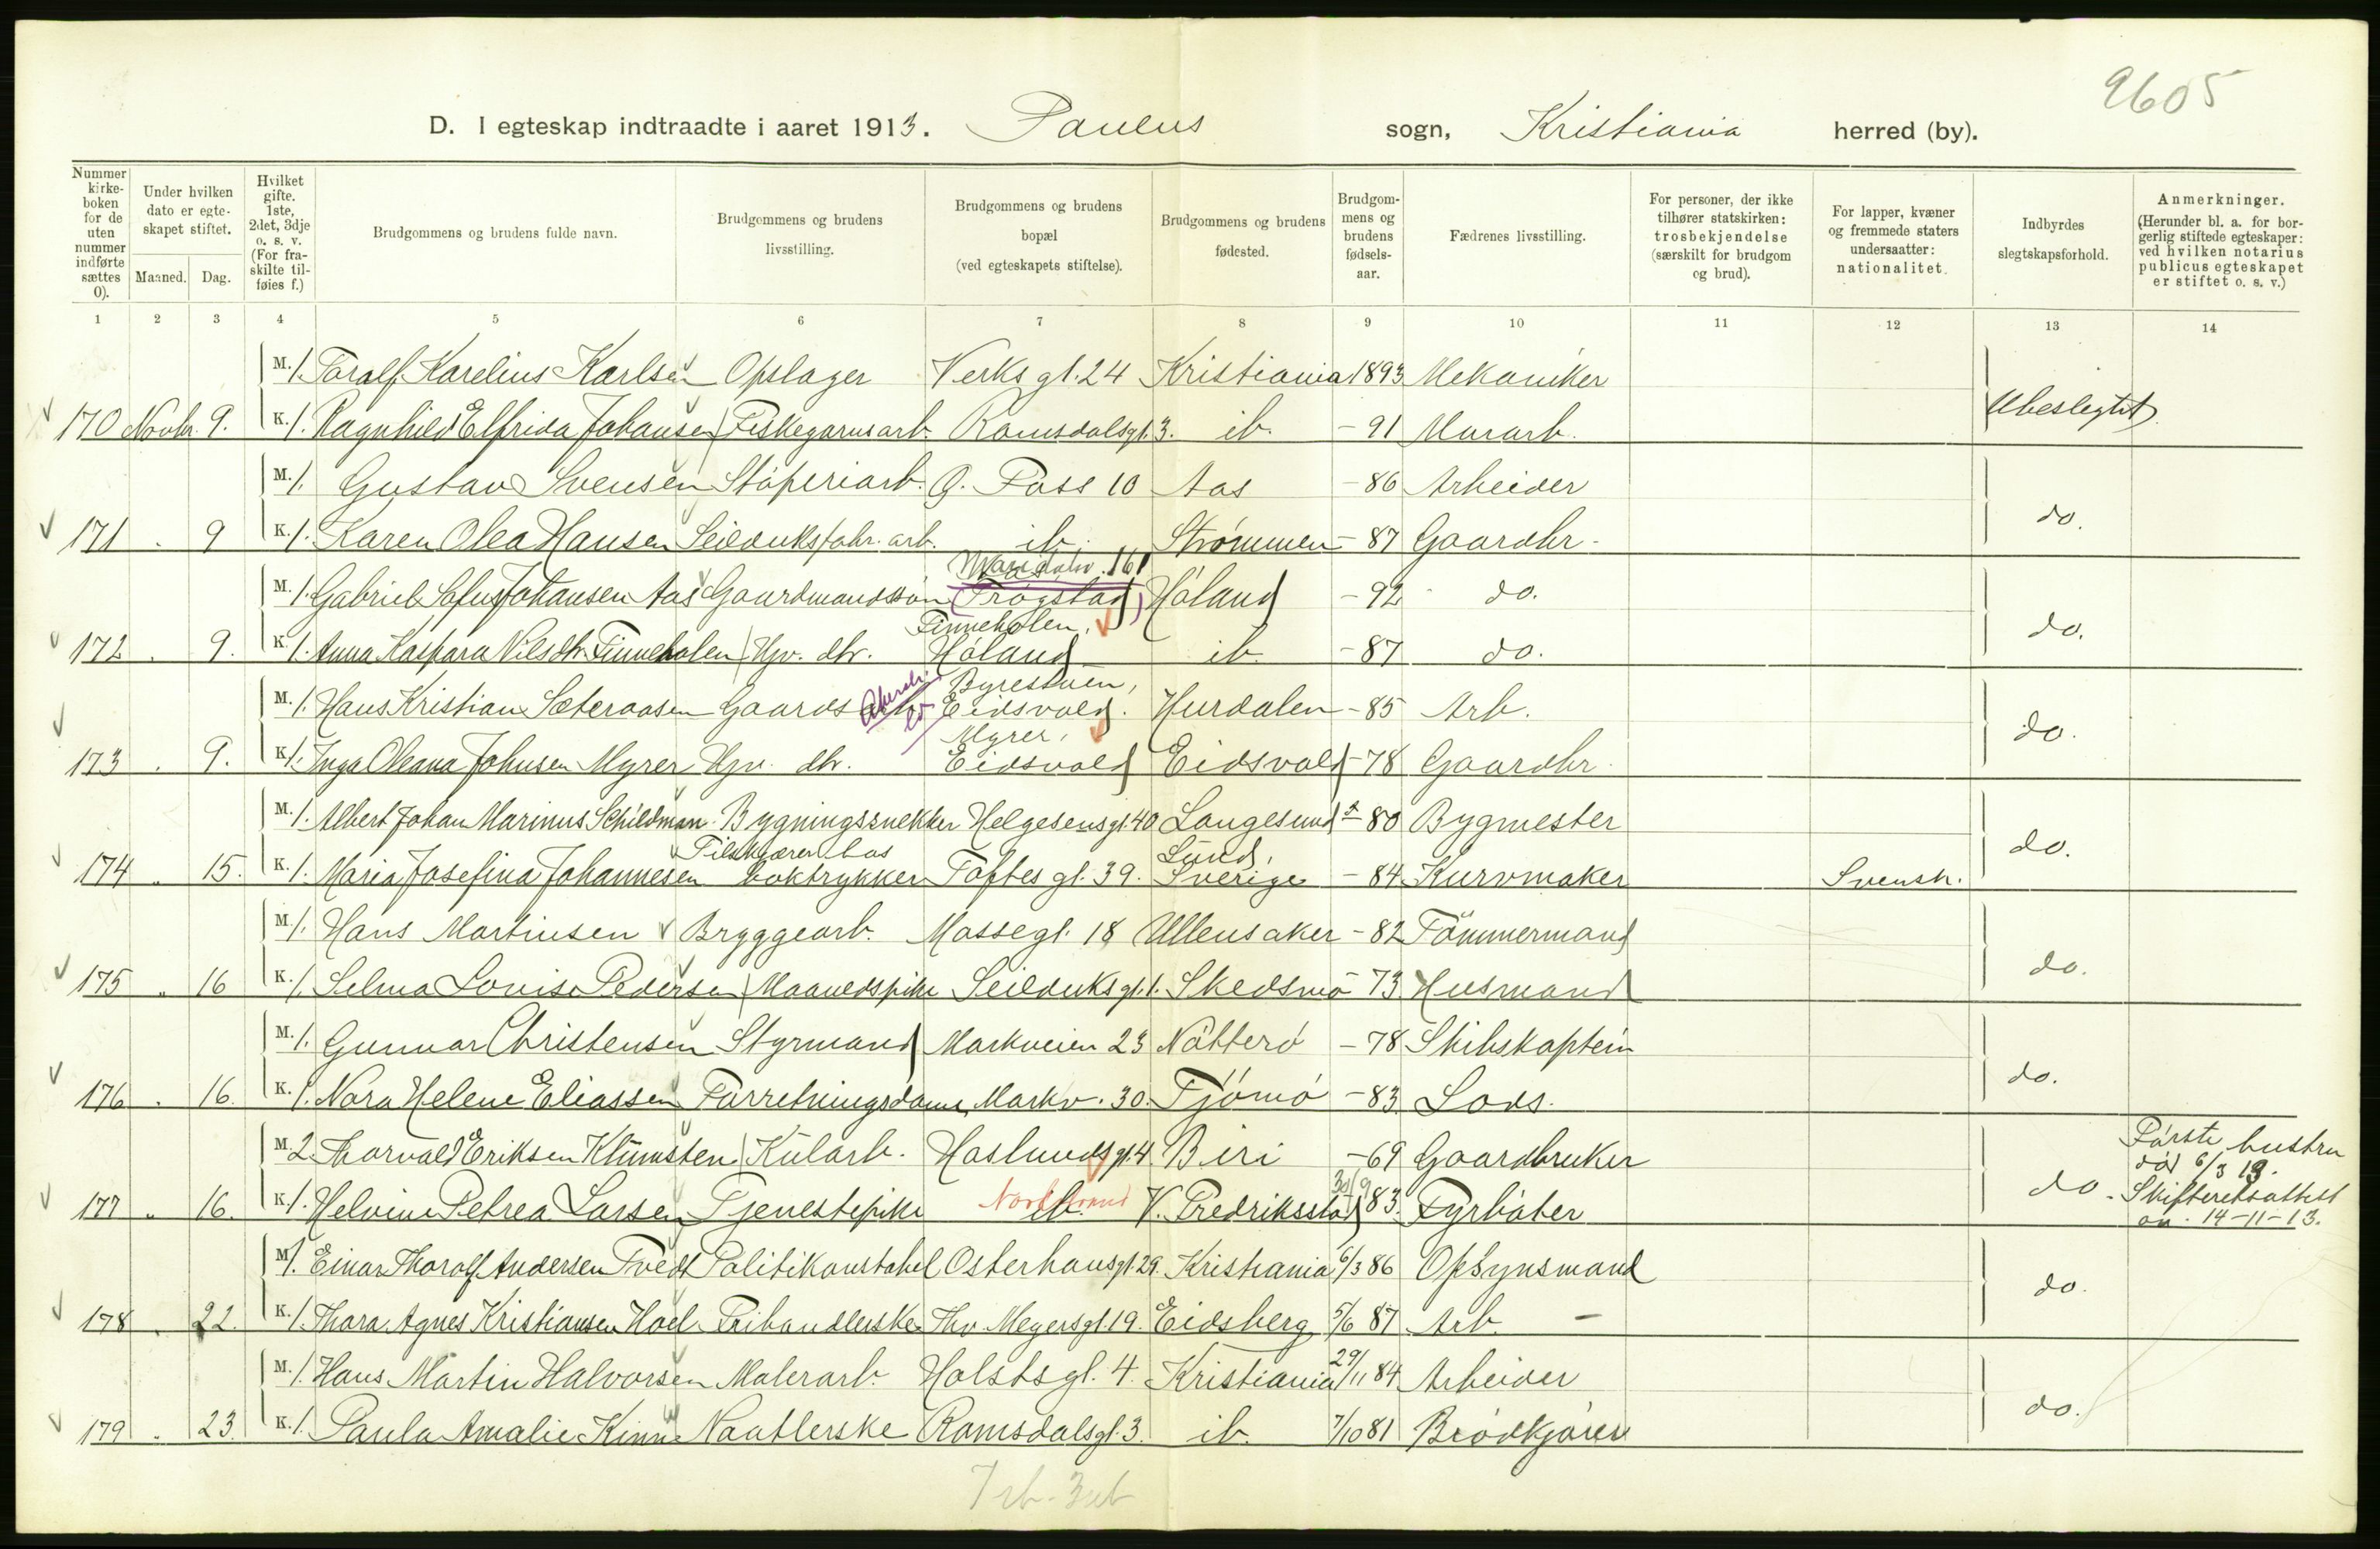 9605
D. I egteskap indtraadte i aaret 1913. Paulus sogn, Kristiania herred (by).
Nummer kirkeboken for de uten nummer indførte sættes 0).
Under hvilken dato er egteskapet stiftet.
Maaned. Dag.
Hvilket gifte. 1ste, 2det, 3dje o. s. v. (For fraskilte tilføies f.)
Brudgommens og brudens fulde navn.
Brudgommens og brudens livsstilling.
Brudgommens og brudens bopæl (ved egteskapets stiftelse).
Brudgommens og brudens fødested.
Brudgommens og brudens fødselsaar.
Fædrenes livsstilling.
For personer, der ikke tilhører statskirken: trosbekjendelse (særskilt for brudgom og brud).
For lapper, kvæner og fremmede staters undersaatter: nationalitet.
Indbyrdes slegtskapsforhold.
Anmerkninger. (Herunder bl. a. for borgerlig stiftede egteskaper: ved hvilken notarius publicus egteskapet er stiftet o. s. v.)
1 2 3 4 5 6 7 8 9 10 11 12 13 14
M. 1. Toralf Karelius Karlsen Opslager Verksgt. 24 Kristiania 1893 Mekaniker
170 Novbr. 9. K. 1. Ragnhild Elfrida Johansen Fiskegarnsarb. Romsdalsgt. 3. ib. - 91 Murarb. Ubeslegtet
M. 1. Gustav Svensen Støperiarb. G. Foss 10 Aas - 86 Arbeider
171 . 9 K. 1. Karen Olea Hansen Seilduksfabr. arb. ib. Strømmen - 87 Gaardbr. do.
Maridalsv. 161
M. 1. Gabriel Sofus Johansen Aas Gaardmandssøn (Trøgstad) Høland - 92 do.
Finneholen,
172 . 9. K. 1. Anna Kaspara Nilsdtr. Finneholen Hjv. dtr. Høland ib. - 87 do. do.
Byrestuen,
M. 1. Hans Kristian Sæteraasen Gaards arb. Eidsvold. Hurdalen - 85 Arb.
Myrer,
173 . 9. K. 1. Inga Oleana Johnsen Myrer Hjv. dtr. Eidsvold Eidsvold - 78 Gaardbr. do.
M. 1. Albert Johan Marinus Schildman Bygningssnekker Helgesensgt. 40 Langesund - 80 Bygmester
Tilskjærer hos Lund,
174 . 15. K. 1. Maria Josefina Johannesen boktrykker Toftes gt. 39. Sverige - 84 Kurvmaker Svensk. do.
M. 1. Hans Martinsen Bryggearb. Mossegt. 18 Ullensaker - 82 Tømmermand
175 . 16 K. 1. Selma Lovise Pedersen Maanedspike Seilduksgt. 1. Skedsmo - 73 Husmand do.
M. 1. Gunnar Christensen Styrmand Markveien 23 Nøtterø - 78 Skibskaptein
176 . 16. K. 1. Nora Helene Eliassen Forretningsdame Markv. 30. Tjømø - 83 Lods. do.
M. 2. Thorvald Eriksen Klumsten Kularb. Haslunds gt. 4. Biri - 69 Gaardbruker Første hustru
død 6/3 19.
177 . 16. K. 1. Helvine Petrea Larsen Tjenestepike ib. Nordstrand V. Fredriksstad 30/9 83. Fyrbøter do. Skifteretsattest
av. 14-11-13.
M. 1. Einar Thoralf Andersen Tvedt Politikonstabel Osterhausgt. 29. Kristiania 6/3 86 Opsynsmand
178 . 22. K. 1. Thora Agnes Kristiansen Hoel Frihandlerske Thv. Meyersgt. 19. Eidsberg 5/6 87 Arb. - do.
M. 1. Hans Martin Halvorsen Malerarb. Holsts gt. 4. Kristiania 29/11 84 Arbeider
179 . 23. K. 1. Paula Amalie Kinn Naatlerske Romsdalsgt. 3. ib. 7/10 81 Brødkjører do.